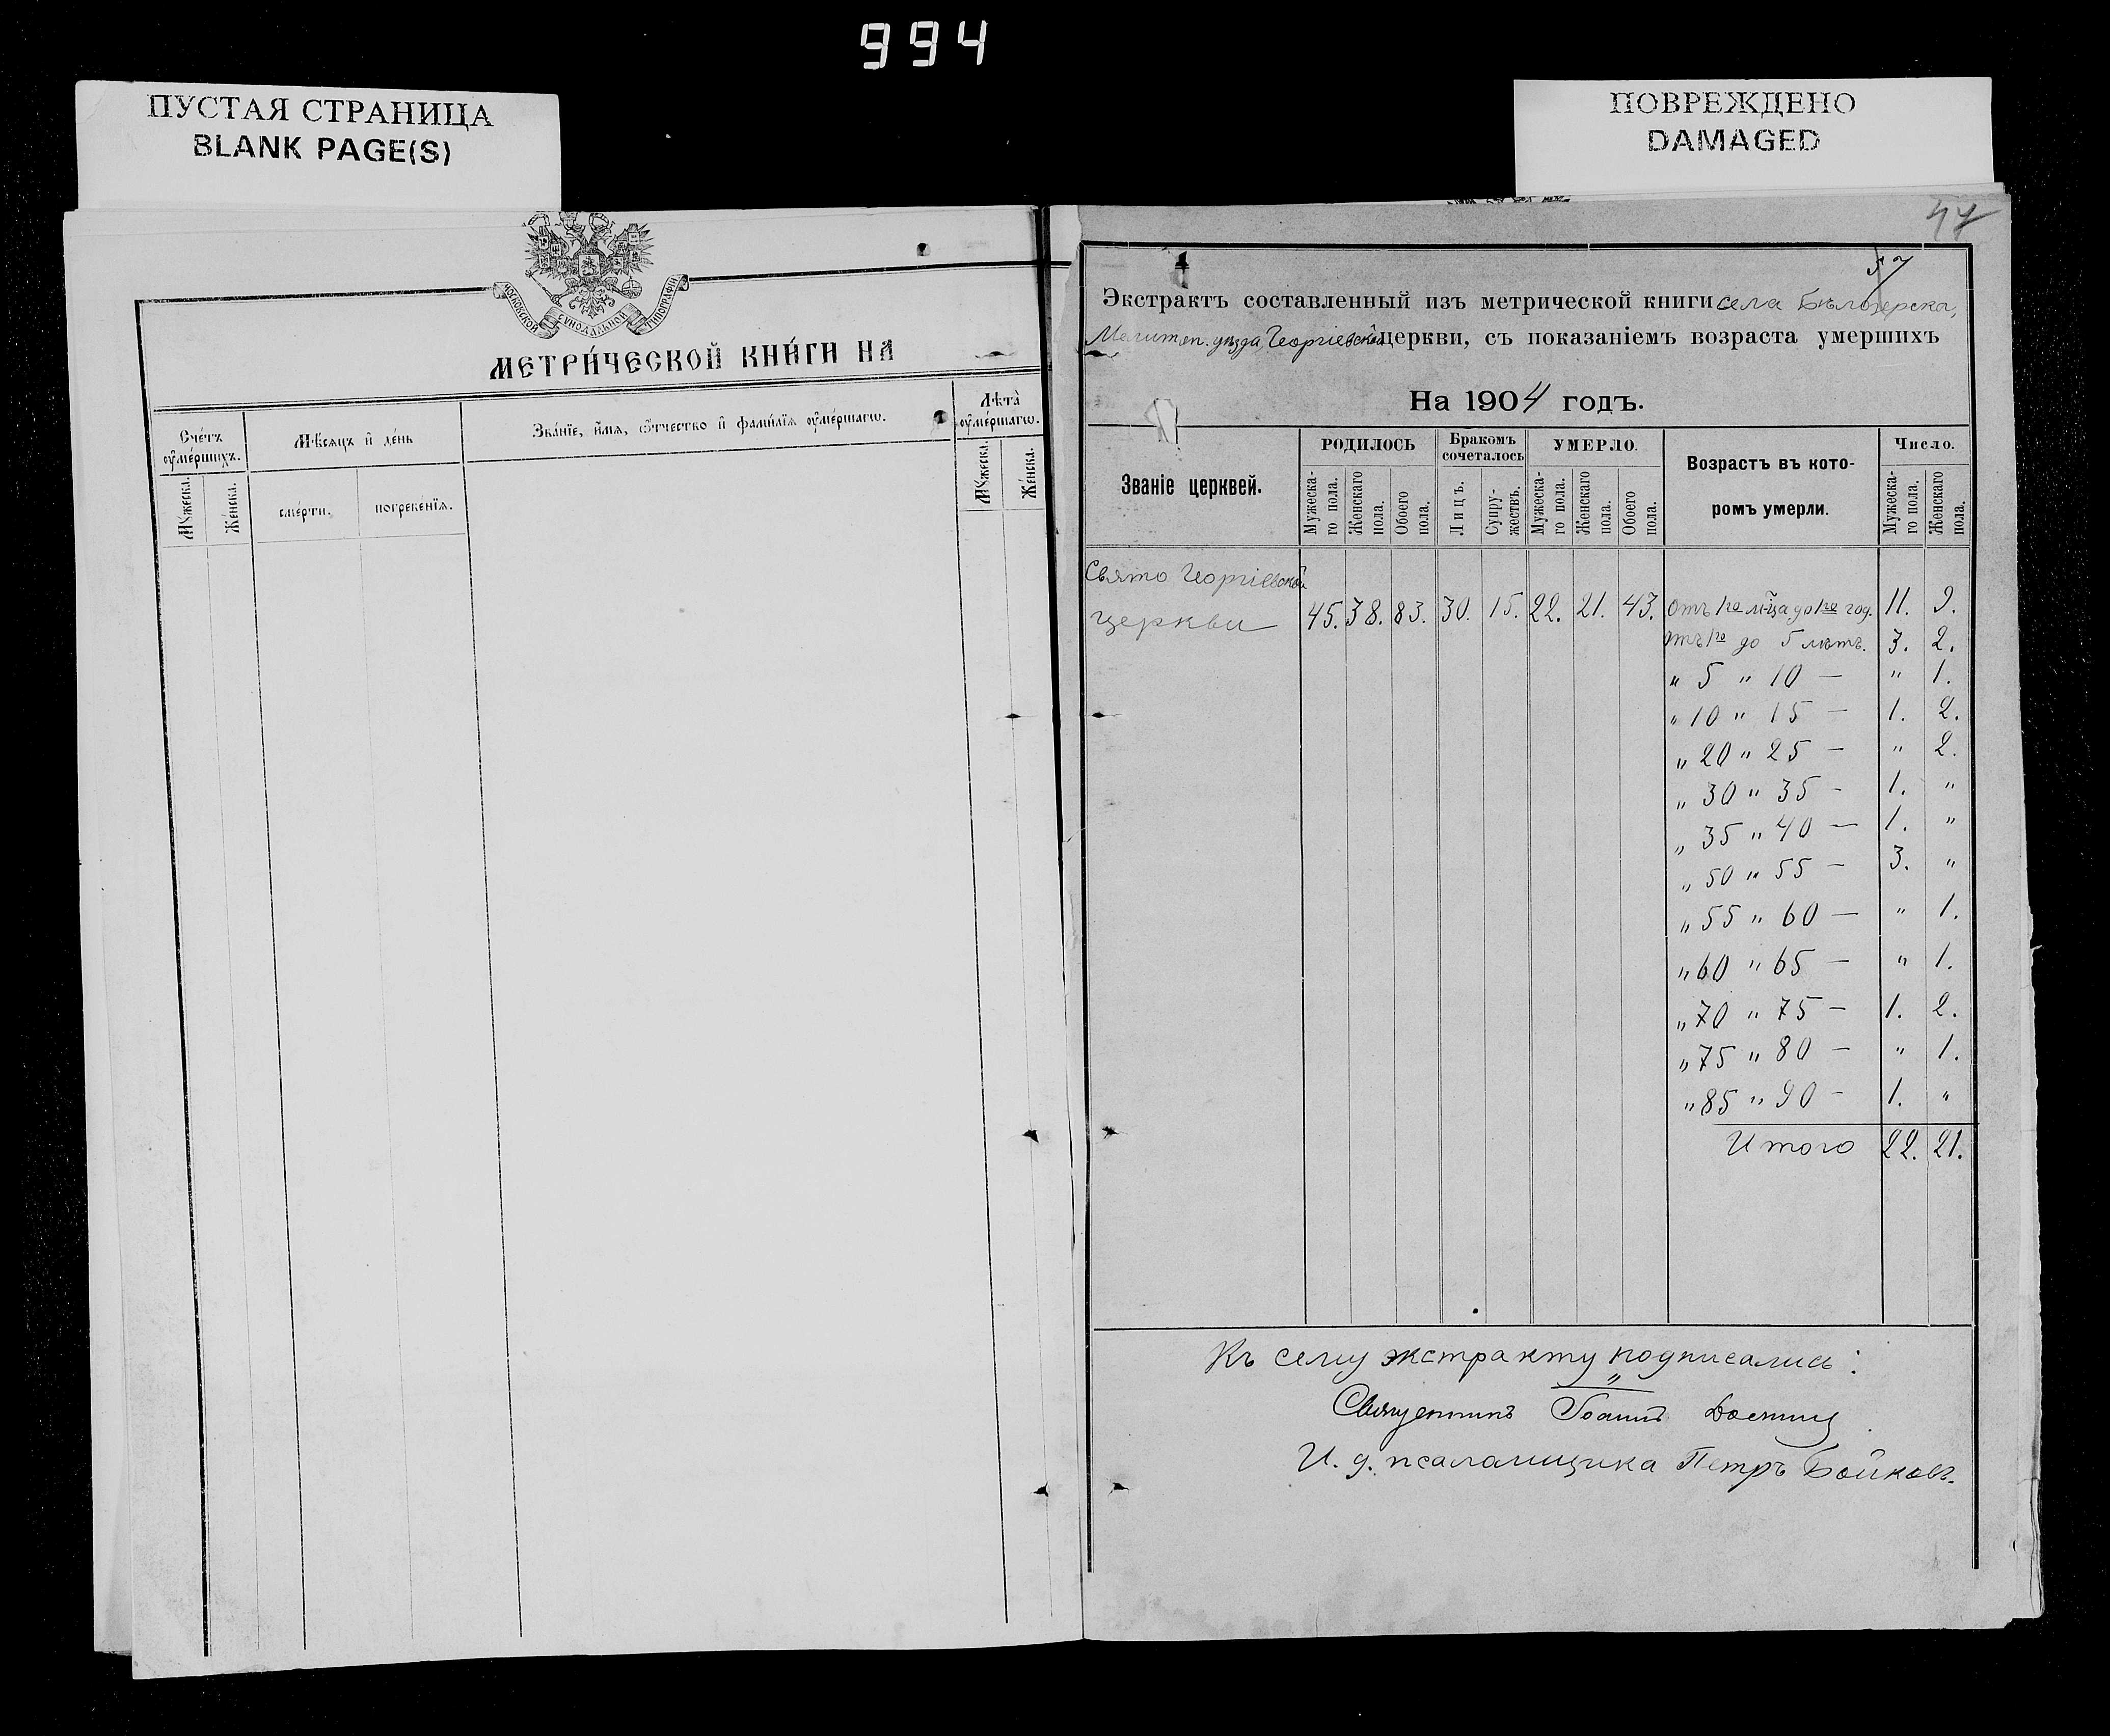 994
ПУСТАЯ СТРАНИЦА
BLANK PAGE(S)
ПОВРЕЖДЕНО
DAMAGED
МОСКОВСКОЙ СѴНОДАЛЬНОЙ ТИПОГРАФІИ
МЕТРИ́ЧЕСКОЙ КНИ́ГИ НА
Сче́тъ ѹ҆ме́ршихъ.
Мѣ́сяцъ и҆ де́нь
Зва́нїе, и҆́мѧ, ѻ҆́тчество и҆ фами́лїѧ ѹ҆ме́ршагѡ.
Лѣта̀ ѹ҆ме́ршагѡ.
Мꙋ́жеска.
Же́нска.
сме́рти.
погребе́нїѧ.
Мꙋ́жеска.
Же́нска.
47
57
Экстрактъ составленный изъ метрической книги села Бѣлозерска,
Мелитоп. уѣзда, Георгіевской церкви, съ показаніемъ возраста умершихъ
На 1904 годъ.
Званіе церквей.
РОДИЛОСЬ
Бракомъ сочеталось
УМЕРЛО.
Возрастъ въ которомъ умерли.
Число.
Мужескаго пола.
Женскаго пола.
Обоего пола.
Лицъ.
Супружествъ.
Мужескаго пола.
Женскаго пола.
Обоего пола.
Мужескаго пола.
Женскаго пола.
Свято Георгіевской
церкви 45. 38. 83. 30. 15. 22. 21. 43. Отъ 1го м-ца до 1го год. 11. 9.
отъ 1го до 5 лѣтъ. 3. 2.
" 5 " 10 — " 1.
" 10 " 15 — 1. 2.
" 20 " 25 — " 2.
" 30 " 35 - 1. "
" 35 " 40 — 1. "
" 50 " 55 — 3. "
" 55 " 60 — " 1.
" 60 " 65 — " 1.
" 70 " 75 — 1. 2.
" 75 " 80 — " 1.
" 85 " 90 - 1. "
Итого 22. 21.
Къ сему экстракту подписались:
Священникъ Іоаннъ
И. д. псаломщика Петръ Бойковъ.